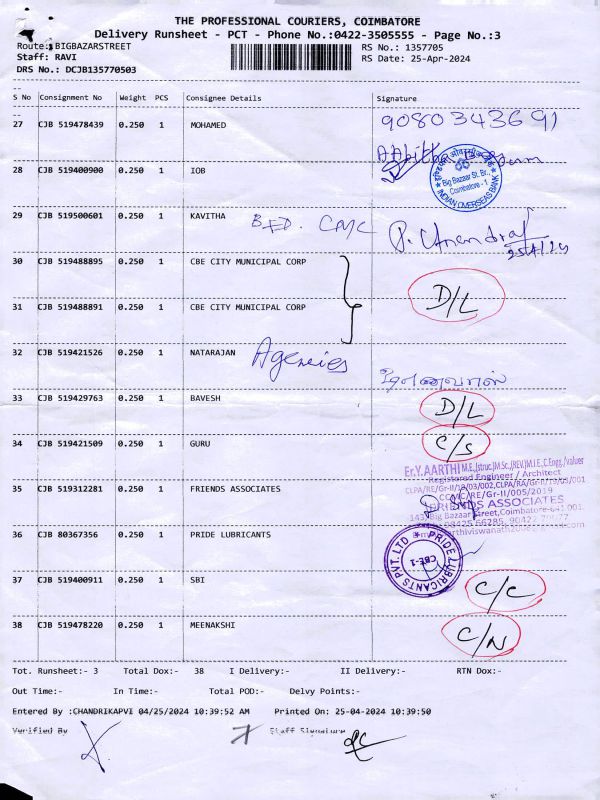 THE PROFESSIONAL COURIERS, COIMBATORE
Delivery Runsheet - PCT - Phone No.:0422-3505555 - Page No.:3
Route: BIGBAZARSTREET RS No.: 1357705
Staff: RAVI RS Date: 25-Apr-2024
DRS No.: DCJB135770503
S No Consignment No Weight PCS Consignee Details Signature
27 CJB 519478439 0.250 1 MOHAMED 9080343691
28 CJB 519400900 0.250 1 IOB
Big Bazaar St. Br.,
Coimbatore - 1
INDIAN OVERSEAS BANK
29 CJB 519500601 0.250 1 KAVITHA B.ED. CMC
25/4/24
30 CJB 519488895 0.250 1 CBE CITY MUNICIPAL CORP
D/L
31 CJB 519488891 0.250 1 CBE CITY MUNICIPAL CORP
32 CJB 519421526 0.250 1 NATARAJAN Agencies
33 CJB 519429763 0.250 1 BAVESH D/L
34 CJB 519421509 0.250 1 GURU C/S
Er.Y.AARTHI M.E.,(struc.)M.Sc.,(REV)M.I.E.,C.Engg.,/valuer
Registered Engineer / Architect
35 CJB 519312281 0.250 1 FRIENDS ASSOCIATES
FRIENDS ASSOCIATES
Big Bazaar Street, Coimbatore-641 001.
36 CJB 80367356 0.250 1 PRIDE LUBRICANTS
PRIDE LUBRICANTS PVT. LTD
CBE-1
37 CJB 519400911 0.250 1 SBI C/C
38 CJB 519478220 0.250 1 MEENAKSHI C/N
Tot. Runsheet:- 3 Total Dox:- 38 I Delivery:- II Delivery:- RTN Dox:-
Out Time:- In Time:- Total POD:- Delvy Points:-
Entered By :CHANDRIKAPVI 04/25/2024 10:39:52 AM Printed On: 25-04-2024 10:39:50
Verified By Staff Signature